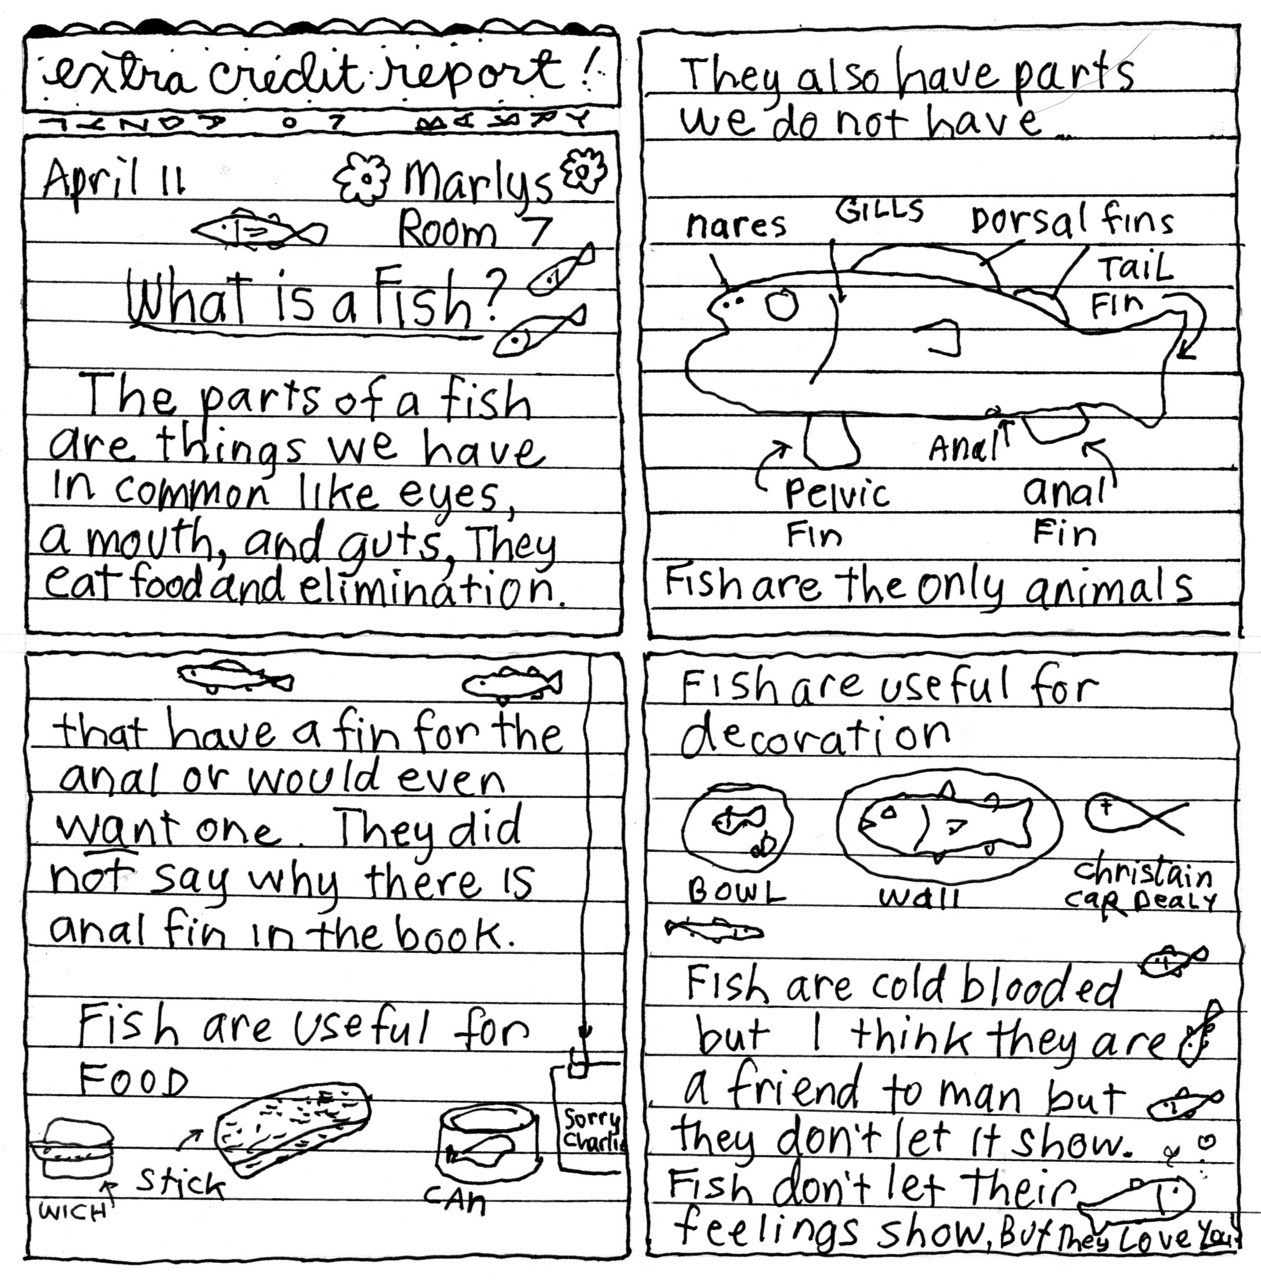 extra credit report!
LYNDA OF BARRY
April 11 Marlys
Room 7
What is a Fish?
The parts of a fish
are things we have
in common like eyes,
a mouth, and guts, They
eat food and elimination.
They also have parts
we do not have
nares GILLS Dorsal fins
TaiL
FiN
Anal
Pelvic anal
Fin Fin
Fish are the only animals
that have a fin for the
anal or would even
want one. They did
not say why there is
anal fin in the book.
Fish are useful for
FOOD
Sorry
Charlie
WICH Stick CAN
Fish are useful for
decoration
BOWL Wall Christain
CAR DEALY
Fish are cold blooded
but I think they are
a friend to man but
they don't let it show.
Fish don't let Their
feelings show, But They Love You!